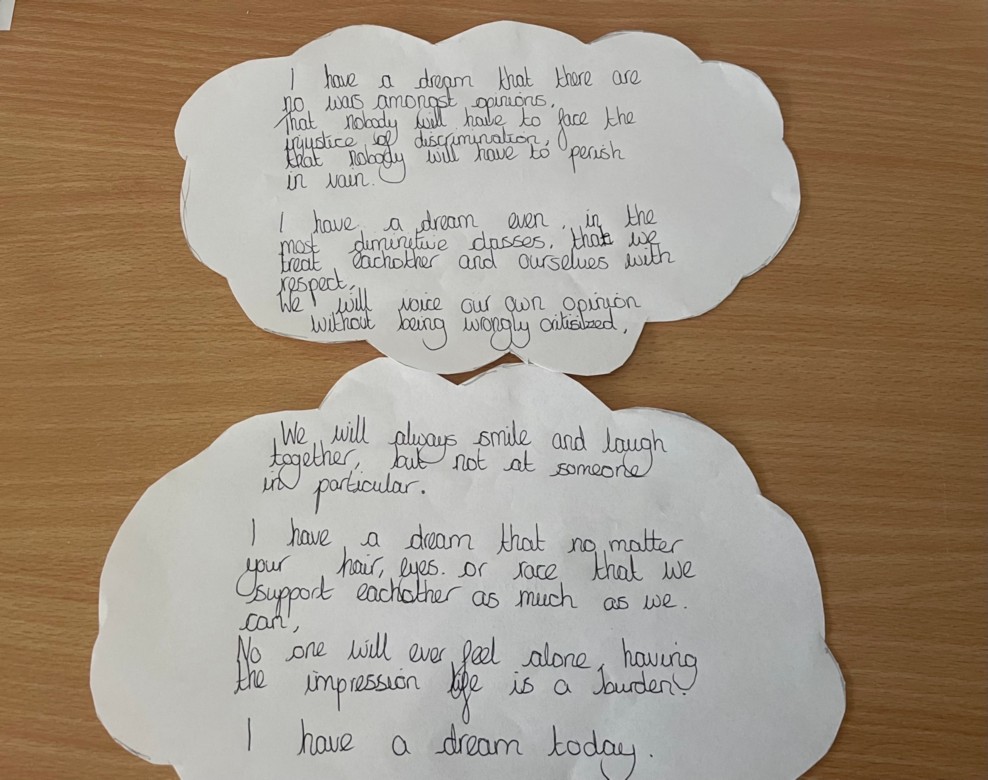 I have a dream that there are
no wars amongst opinions,
That nobody will have to face the
injustice of discrimination,
that nobody will have to perish
in vain.
I have a dream even in the
most diminitive classes, that we
treat eachother and ourselves with
respect,
We will voice our own opinion
without being wrongly critisized,
We will always smile and laugh
together, but not at someone
in particular.
I have a dream that no matter
your hair, eyes. or race that we
support eachother as much as we.
can,
No one will ever feel alone, having
the impression life is a burden.
I have a dream today.